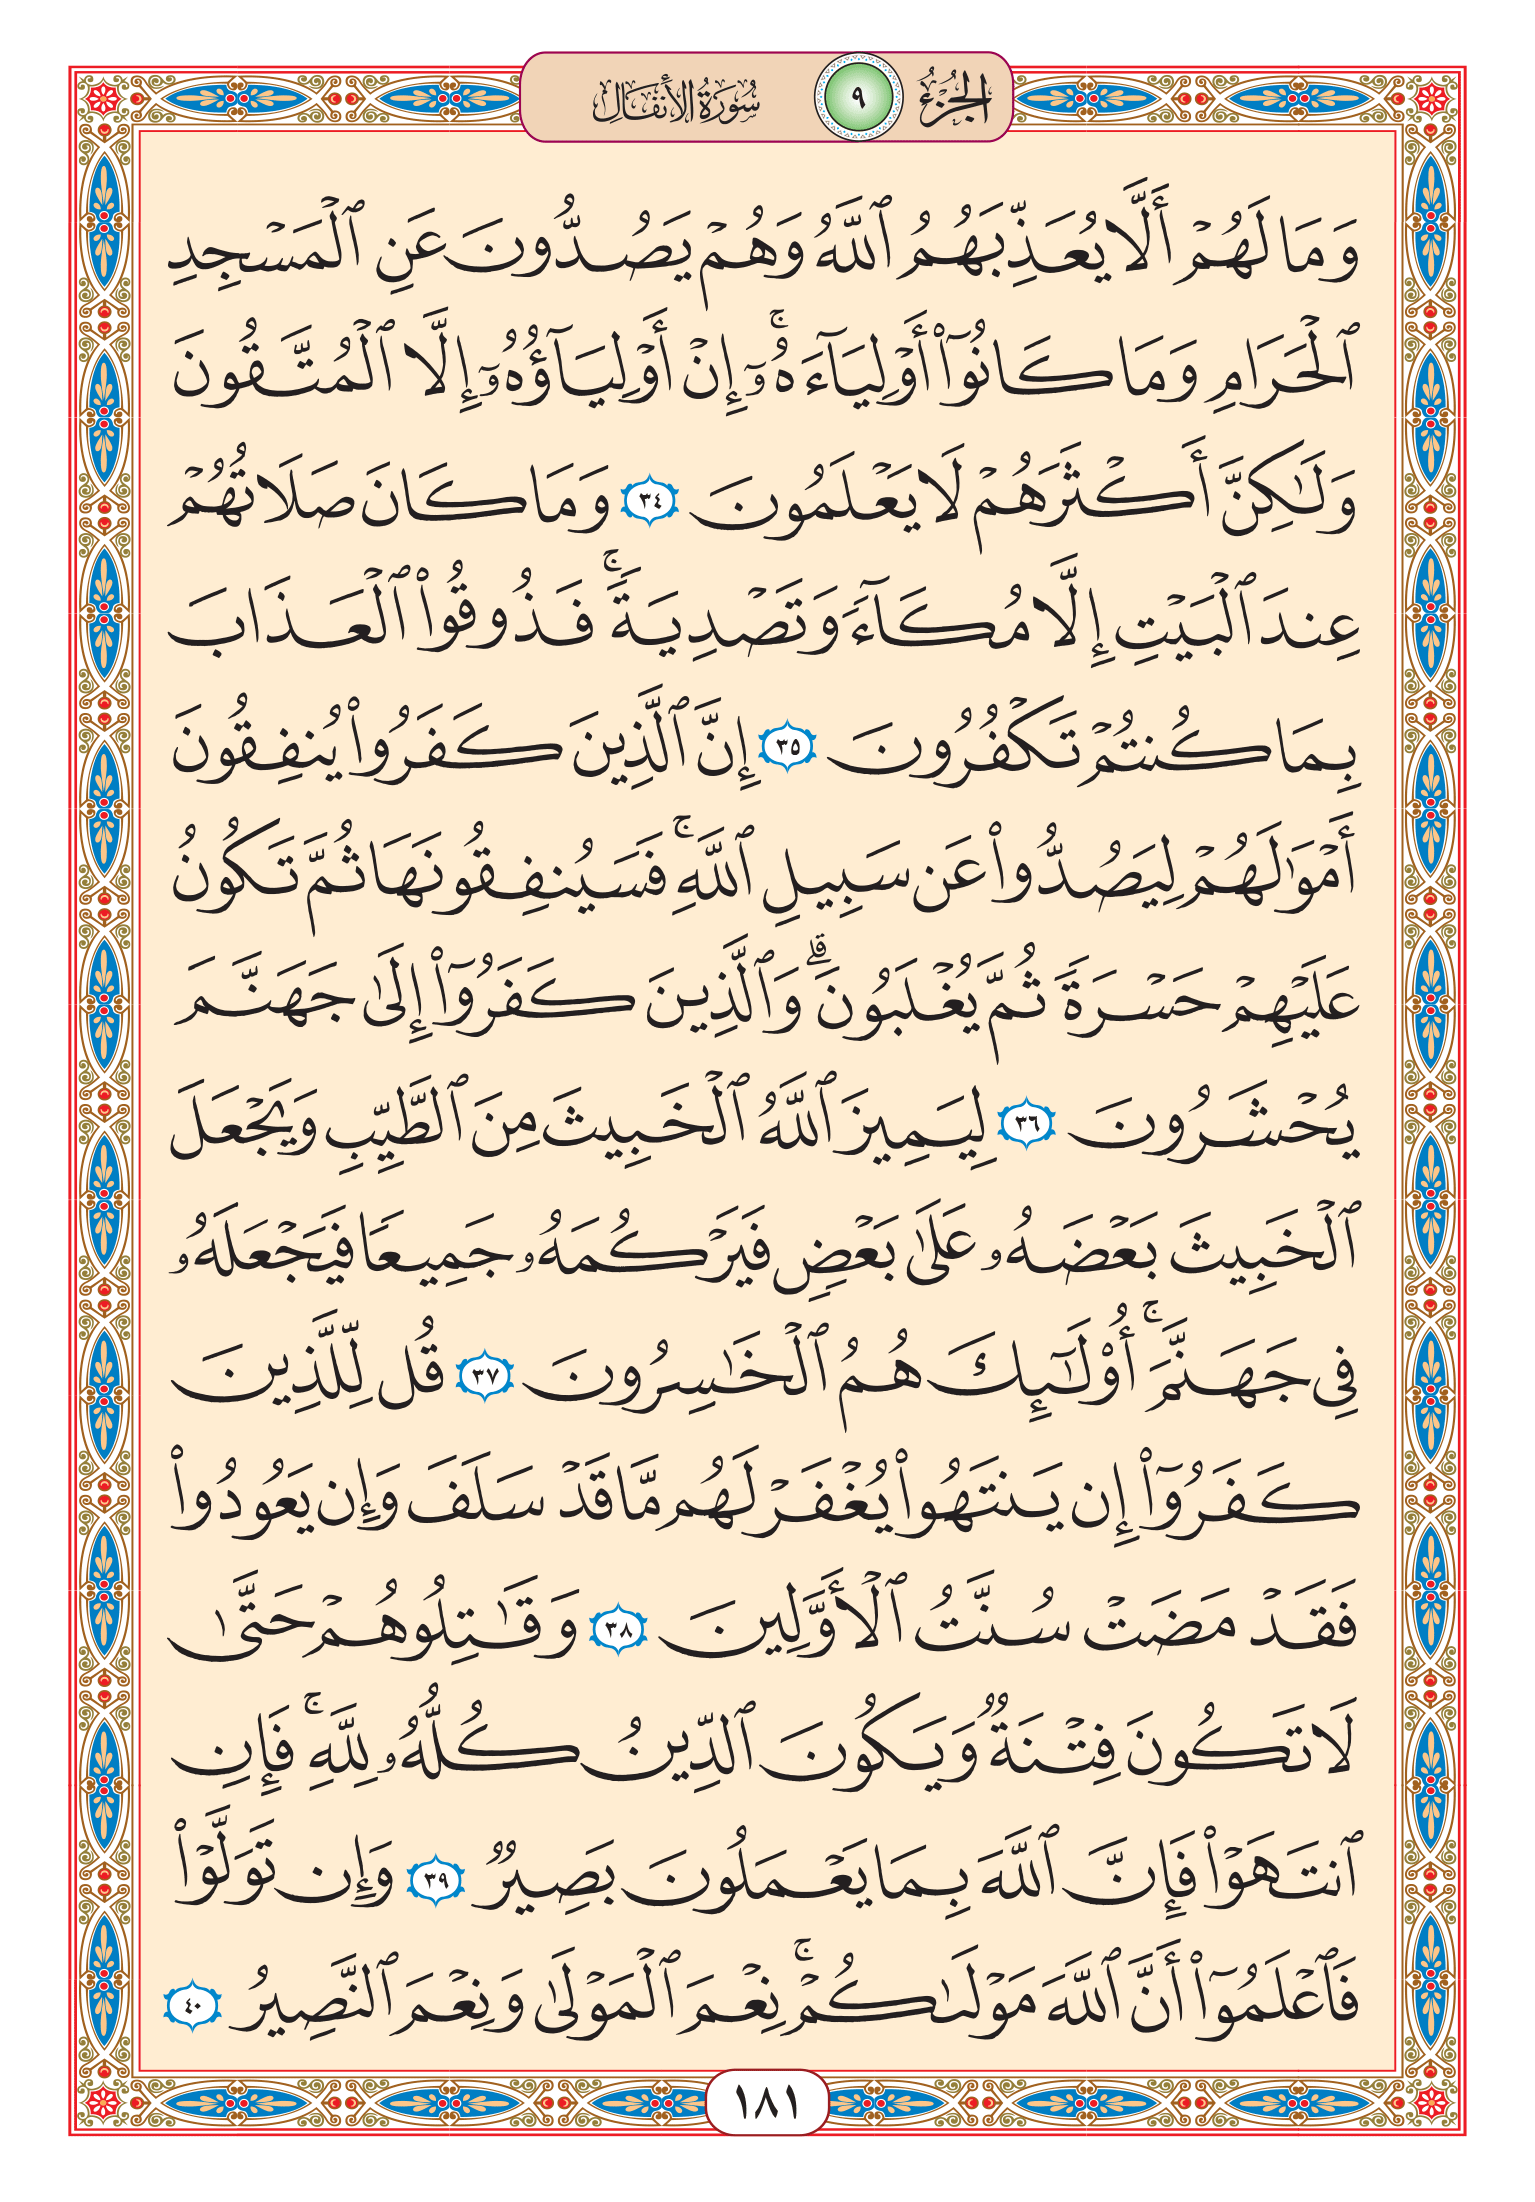 الجزء ٩ سورة الأنفال
وَمَا لَهُمۡ أَلَّا يُعَذِّبَهُمُ ٱللَّهُ وَهُمۡ يَصُدُّونَ عَنِ ٱلۡمَسۡجِدِ
ٱلۡحَرَامِ وَمَا كَانُوٓاْ أَوۡلِيَآءَهُۥٓۚ إِنۡ أَوۡلِيَآؤُهُۥٓ إِلَّا ٱلۡمُتَّقُونَ
وَلَٰكِنَّ أَكۡثَرَهُمۡ لَا يَعۡلَمُونَ ٣٤ وَمَا كَانَ صَلَاتُهُمۡ
عِندَ ٱلۡبَيۡتِ إِلَّا مُكَآءٗ وَتَصۡدِيَةٗۚ فَذُوقُواْ ٱلۡعَذَابَ
بِمَا كُنتُمۡ تَكۡفُرُونَ ٣٥ إِنَّ ٱلَّذِينَ كَفَرُواْ يُنفِقُونَ
أَمۡوَٰلَهُمۡ لِيَصُدُّواْ عَن سَبِيلِ ٱللَّهِۚ فَسَيُنفِقُونَهَا ثُمَّ تَكُونُ
عَلَيۡهِمۡ حَسۡرَةٗ ثُمَّ يُغۡلَبُونَۗ وَٱلَّذِينَ كَفَرُوٓاْ إِلَىٰ جَهَنَّمَ
يُحۡشَرُونَ ٣٦ لِيَمِيزَ ٱللَّهُ ٱلۡخَبِيثَ مِنَ ٱلطَّيِّبِ وَيَجۡعَلَ
ٱلۡخَبِيثَ بَعۡضَهُۥ عَلَىٰ بَعۡضٖ فَيَرۡكُمَهُۥ جَمِيعٗا فَيَجۡعَلَهُۥ
فِي جَهَنَّمَۚ أُوْلَٰٓئِكَ هُمُ ٱلۡخَٰسِرُونَ ٣٧ قُل لِّلَّذِينَ
كَفَرُوٓاْ إِن يَنتَهُواْ يُغۡفَرۡ لَهُم مَّا قَدۡ سَلَفَ وَإِن يَعُودُواْ
فَقَدۡ مَضَتۡ سُنَّتُ ٱلۡأَوَّلِينَ ٣٨ وَقَٰتِلُوهُمۡ حَتَّىٰ
لَا تَكُونَ فِتۡنَةٞ وَيَكُونَ ٱلدِّينُ كُلُّهُۥ لِلَّهِۚ فَإِنِ
ٱنتَهَوۡاْ فَإِنَّ ٱللَّهَ بِمَا يَعۡمَلُونَ بَصِيرٞ ٣٩ وَإِن تَوَلَّوۡاْ
فَٱعۡلَمُوٓاْ أَنَّ ٱللَّهَ مَوۡلَىٰكُمۡۚ نِعۡمَ ٱلۡمَوۡلَىٰ وَنِعۡمَ ٱلنَّصِيرُ ٤٠
١٨١